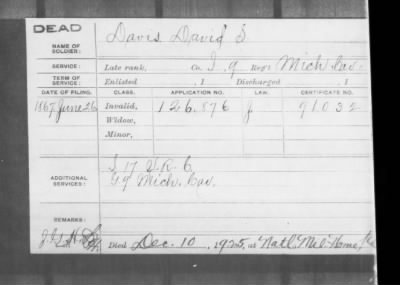 DEAD
NAME OF SOLDIER: Davis, David S
SERVICE: Late rank, Co. I, 9 Reg't Mich. Cav.
TERM OF SERVICE: Enlisted , 1 Discharged , 1
DATE OF FILING. CLASS. APPLICATION NO. LAW. CERTIFICATE NO.
1867, June 26 Invalid, 126.876 91032
Widow,
Minor,
ADDITIONAL SERVICES: I 17 V.R.C.
G 9 Mich. Cav.
REMARKS:
Died Dec. 10, 1925, at Nat'l Mil. Home,